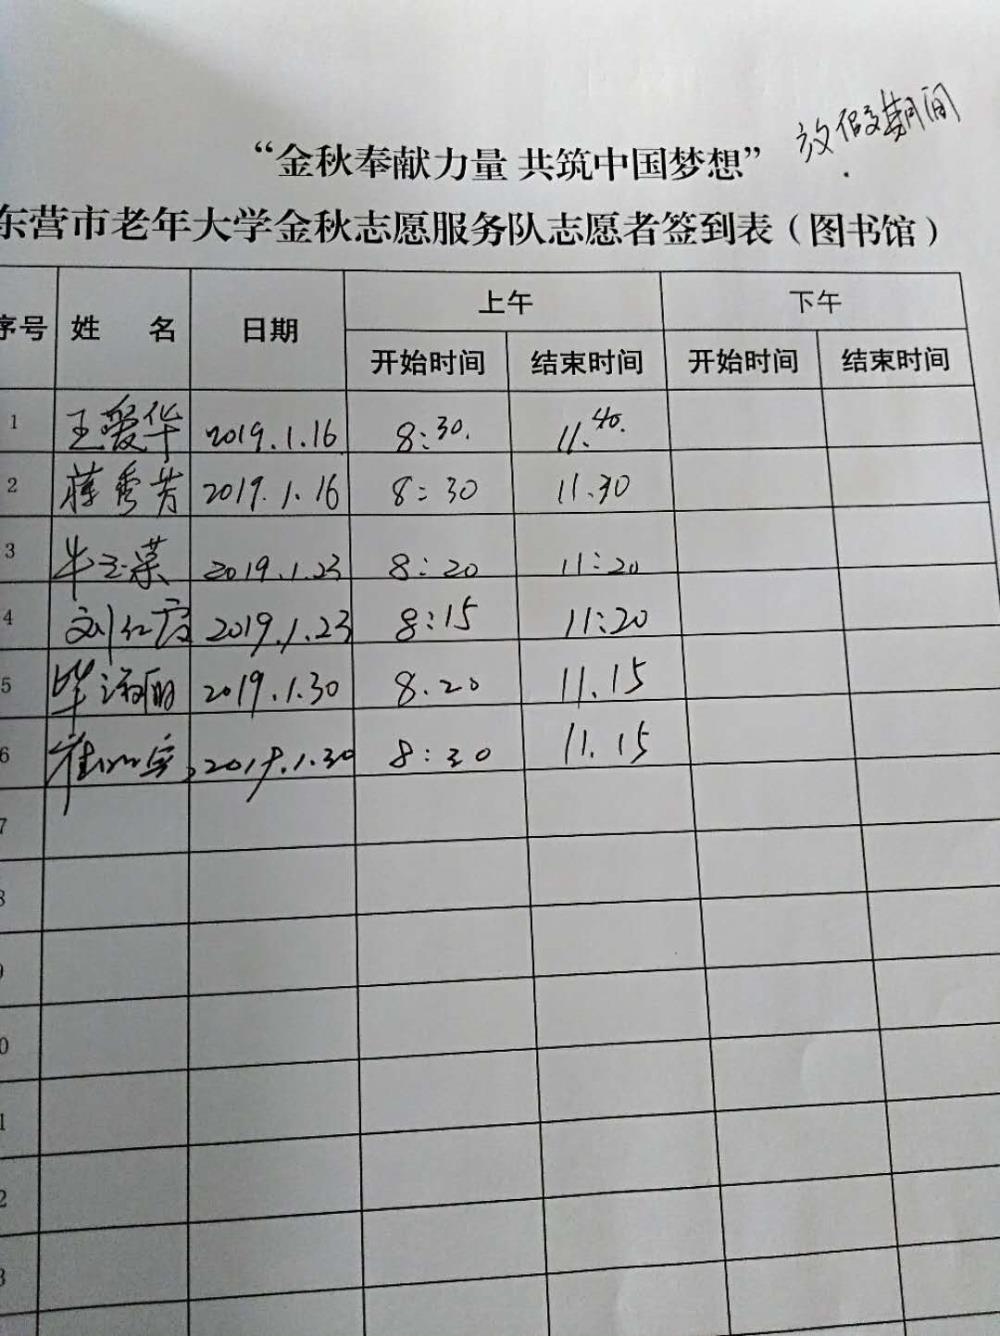 放假期间
“金秋奉献力量 共筑中国梦想”
东营市老年大学金秋志愿服务队志愿者签到表（图书馆）
序号 姓 名 日期 上午 下午
开始时间 结束时间 开始时间 结束时间
1 王爱华 2019.1.16 8:30. 11.40.
2 蒋秀芳 2019.1.16 8:30 11.30
3 牛玉荣 2019.1.23 8:20 11:20
4 刘红霞 2019.1.23 8:15 11:20
5 毕淑丽 2019.1.30 8.20 11.15
6 崔 2019.1.30 8:30 11.15
7
8
9
0
1
2
3